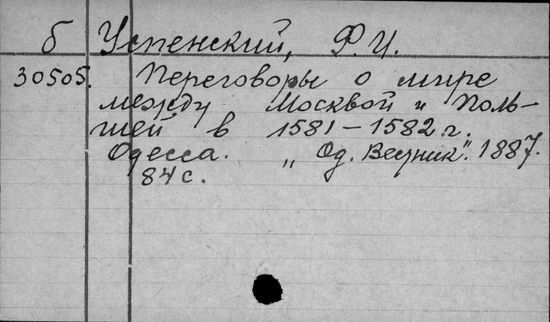 б Успенский, Ф. И.
30505. Переговоры о мире
между Москвой и Поль-
шей в 1581-1582 г.
Одесса. „Од. Вестник". 1887.
84 с.